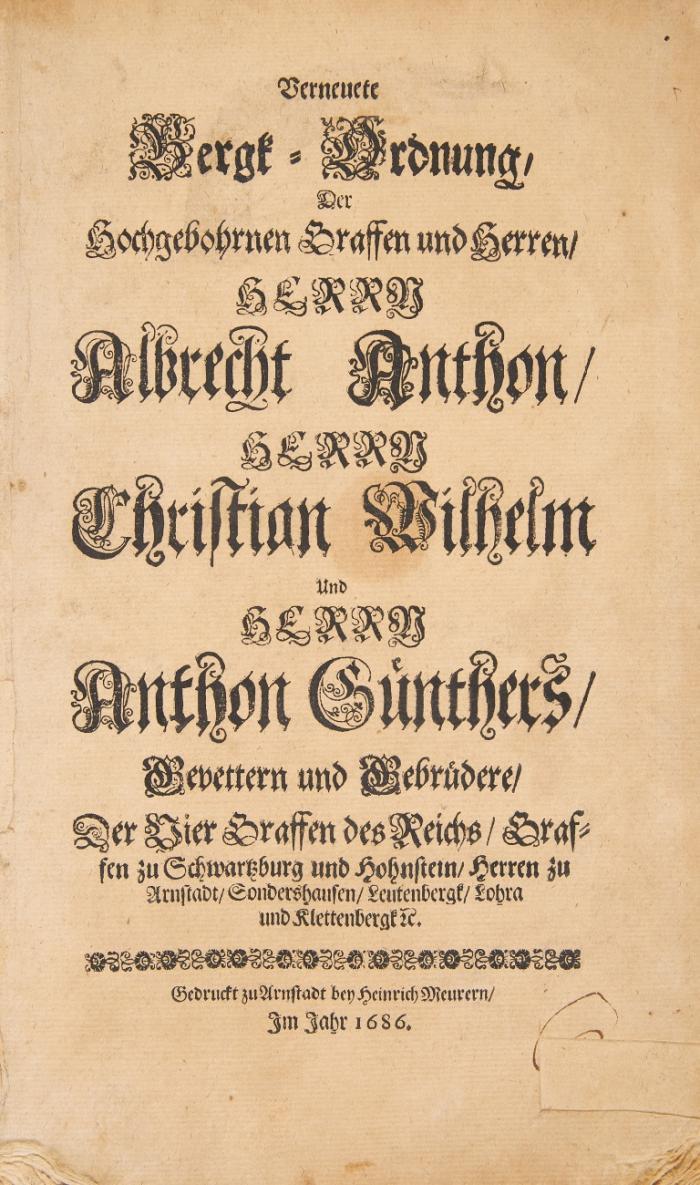 Verneuete
Bergk-Ordnung/
Der
Hochgebohrnen Graffen und Herren/
HERRN
Albrecht Anthon/
HERRN
Christian Wilhelm
Und
HERRN
Anthon Günthers/
Gevettern und Gebrüdere/
Der Vier Graffen des Reichs/ Graf-
fen zu Schwartzburg und Hohnstein/ Herren zu
Arnstadt/ Sondershausen/ Leutenbergk/ Lohra
und Klettenbergk ꝛc.
Gedruckt zu Arnstadt bey Heinrich Meurern/
Im Jahr 1686.